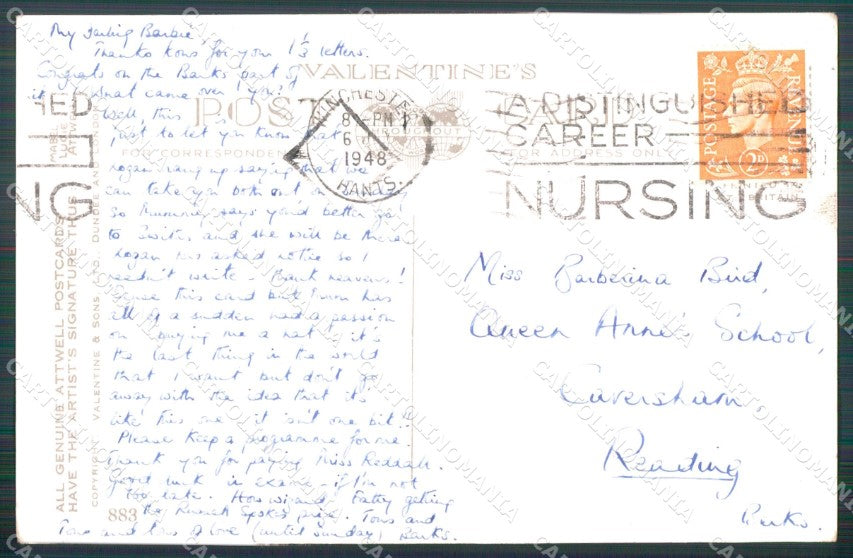 My darling Barbie
Thanks tons for your 1⅓ letters.
Congrats on the Banks part of
it. what came over you?
Well, this
just to let you know that
Logan rang up saying that we
can take you both out on
so Mummy says you'd better go
to Switz, and she will be there
Logan has asked notice so I
needn't write. Thank heavens!
this card but Mum has
all of a sudden had a passion
on buying me a hat & it's
the last thing in the world
that I want but don't go
away with the idea that it's
like this one - it isn't one bit!!
Please keep a programme for me.
Thank you for paying Miss Reddall.
Good luck in exams - if I'm not
too late. How is Fatty getting
the prize. Tons and
Tons and tons of love (until Sunday) Barks.
VALENTINE'S
POST CARD
FOR CORRESPONDENCE
FOR ADDRESS ONLY
MABEL
LUCIE
ATTWELL
WINCHESTER
8 - PM
6
1948
HANTS.
A DISTINGUISHED
CAREER
NURSING
POSTAGE
REVENUE
2D
Miss Barberina Bird,
Queen Anne's School,
Caversham
Reading
Berks.
ALL GENUINE ATTWELL POSTCARDS
HAVE THE ARTIST'S SIGNATURE THUS
COPYRIGHT VALENTINE & SONS, LTD. DUNDEE AND LONDON
883
CARTOLINOMANIA